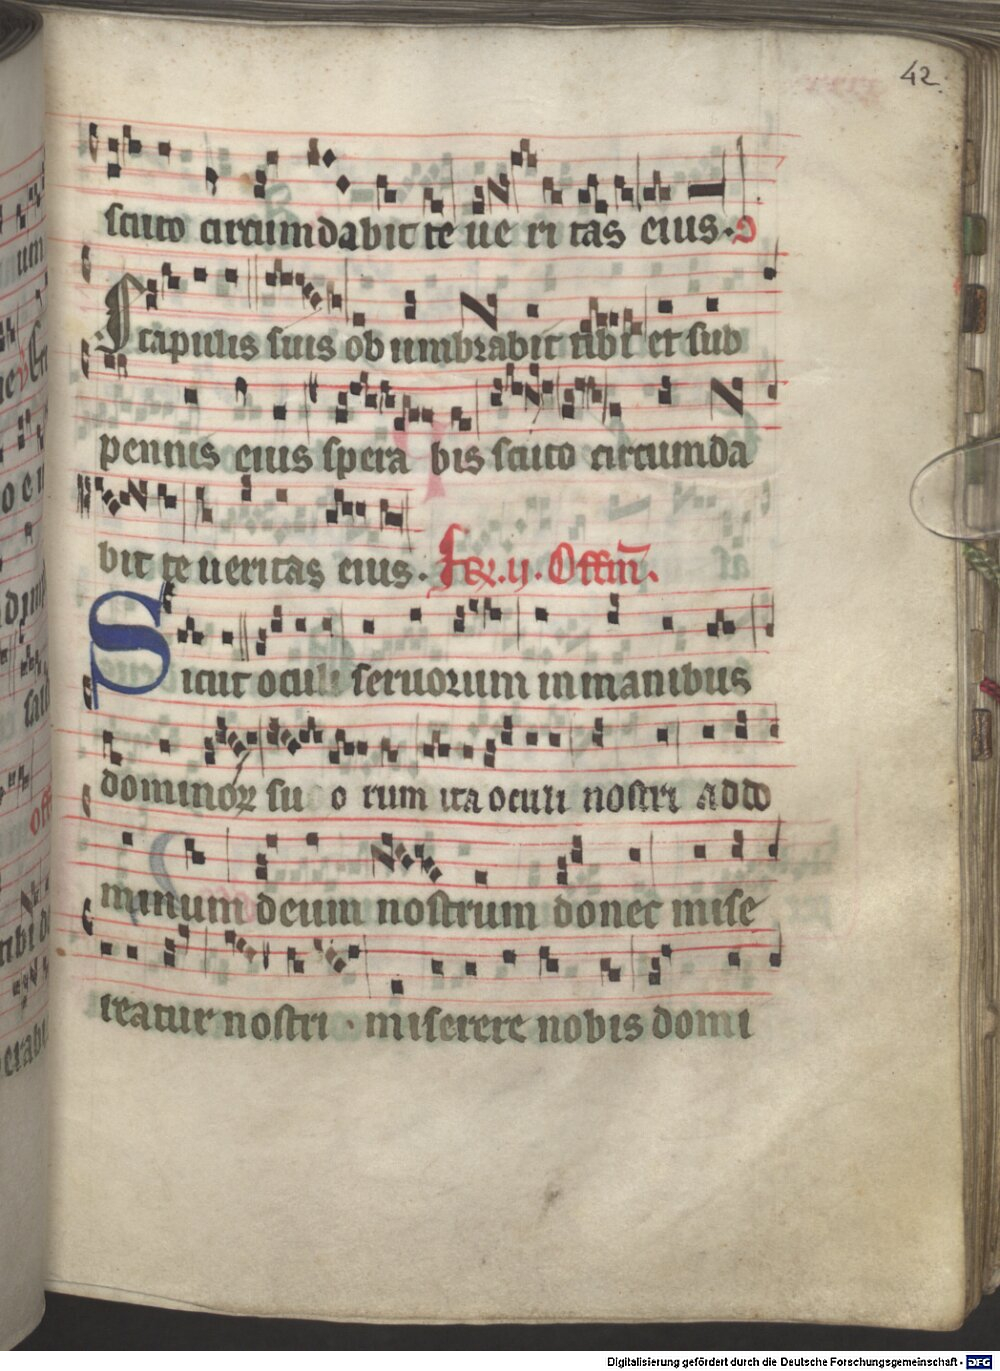 42
scuto circumdabit te ue ri tas eius. c
Scapulis suis ob umbrabit tibi et sub
pennis eius spera bis scuto circumda
bit te ueritas eius. Fer. ij. Offm̄.
Sicut oculi seruorum in manibus
dominoꝝ su o rum ita oculi nostri ad do
minum deum nostrum donec mise
reatur nostri · miserere nobis domi
Digitalisierung gefördert durch die Deutsche Forschungsgemeinschaft - DFG